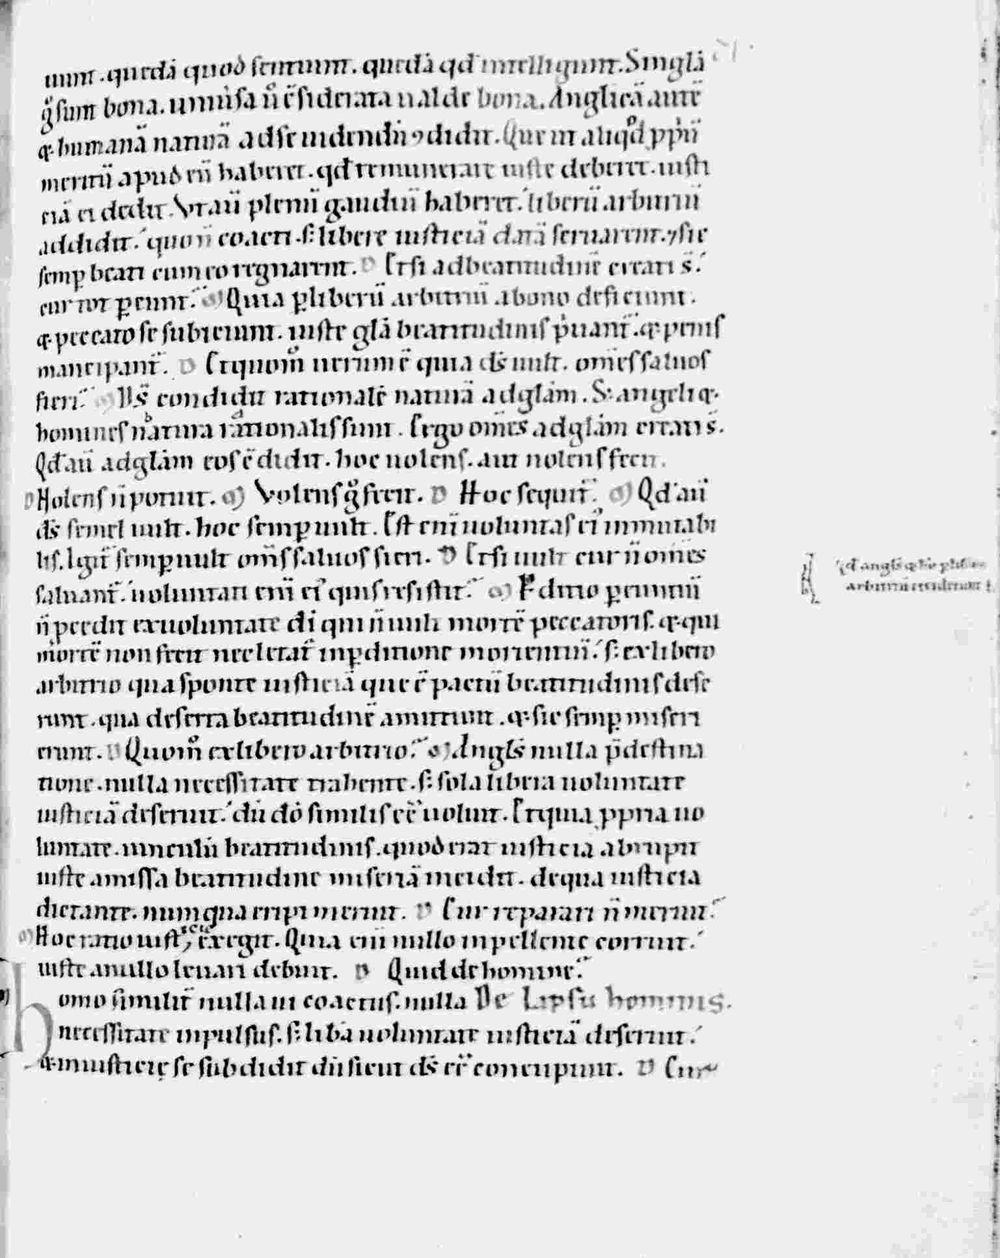 uiunt. quedā quod sentiunt. quedā qd intelligunt. Singlā
g̊ sunt bona. uniũsa ñ c̄siderata ualde bona. Anglicā autē
⁊ humanā naturā ad se uidendū ꝯdidit. Que ut aliqđ ꝓpriū
meritū apud eū haberet. qđ remunerare iuste deberet. iusti
ciā ei dedit. Vt aū plenū gaudiū haberet. liberū arbitriū
addidit. quoñ coacti. s; libere iusticiā datā seruarent. ⁊ sic
semꝑ beati cum eo regnarent. D Et si ad beatitudinē creati s̄.
cur tot ꝑeunt. M Quia ꝑ liberū arbitriū a bono deficiunt.
⁊ peccato se subiciunt. iuste glā beatitudinis p̱uant̄. ⁊ penis
mancipant̄. D Et quom̊ uerum ē quia ds̄ uult. om̄es saluos
fieri. M D̄s condidit rationalē naturā ad glām. S; angeli ⁊
homines natura rationalis sunt. Ergo om̄es ad glām creati s̄.
Qđ aū ad glām eos c̄didit. hoc uolens. aut nolens fecit.
D Nolens ñ potuit. M Volens g̊ fecit. D Hoc sequit̄. M Qđ aū
ds̄ semel uult. hoc semꝑ uult. Est enī uoluntas ei᾽ inmutabi
lis. Igit̄ semꝑ uult om̄s saluos fieri. D Et si uult cur ñ om̄es
saluant̄. uoluntati enī ei᾽ quis resistit. M Perditio ꝑeuntiū
ñ pendit ex uoluntate dī qui ñ uult mortē peccatoris. ⁊ qui
mortē non fecit nec letat̄ in ꝑditione morientiū. s; ex libero
arbitrio qua sponte iusticiā que ē pactū beatitudinis dese
runt. qua deserta beatitudinē amittunt. ⁊ sic semꝑ miseri
erunt. D Quom̊ ex libero arbitrio. M Angls̄ nulla p̄destina
tione. nulla necessitate trahente. s; sola libera uoluntate
iusticiā deseruit. dū dō similis cē uoluit. Et quia ꝓpria uo
luntate. uinculū beatitudinis. quod erat iusticia abrupit
iuste amissa beatitudine miseriā incidit. de qua iusticia
dictante. numquā eripi meruit. D Cur reparari ñ meruit.
M Hoc ratio iusticie exegit. Quia enī nullo inpellente corruit.
iuste a nullo leuari debuit. D Quid de homine.
Homo similit̄ nulla ui coactus. nulla De Lapsu hominis.
necessitate inpulsus. s; libā uoluntate iusticiā deseruit.
⁊ iniusticie se subdidit dū sicut ds̄ cē concupiuit. D Cur
qđ angli ⁊ hoīes ꝑ liberū
arbitriū ceciderunt